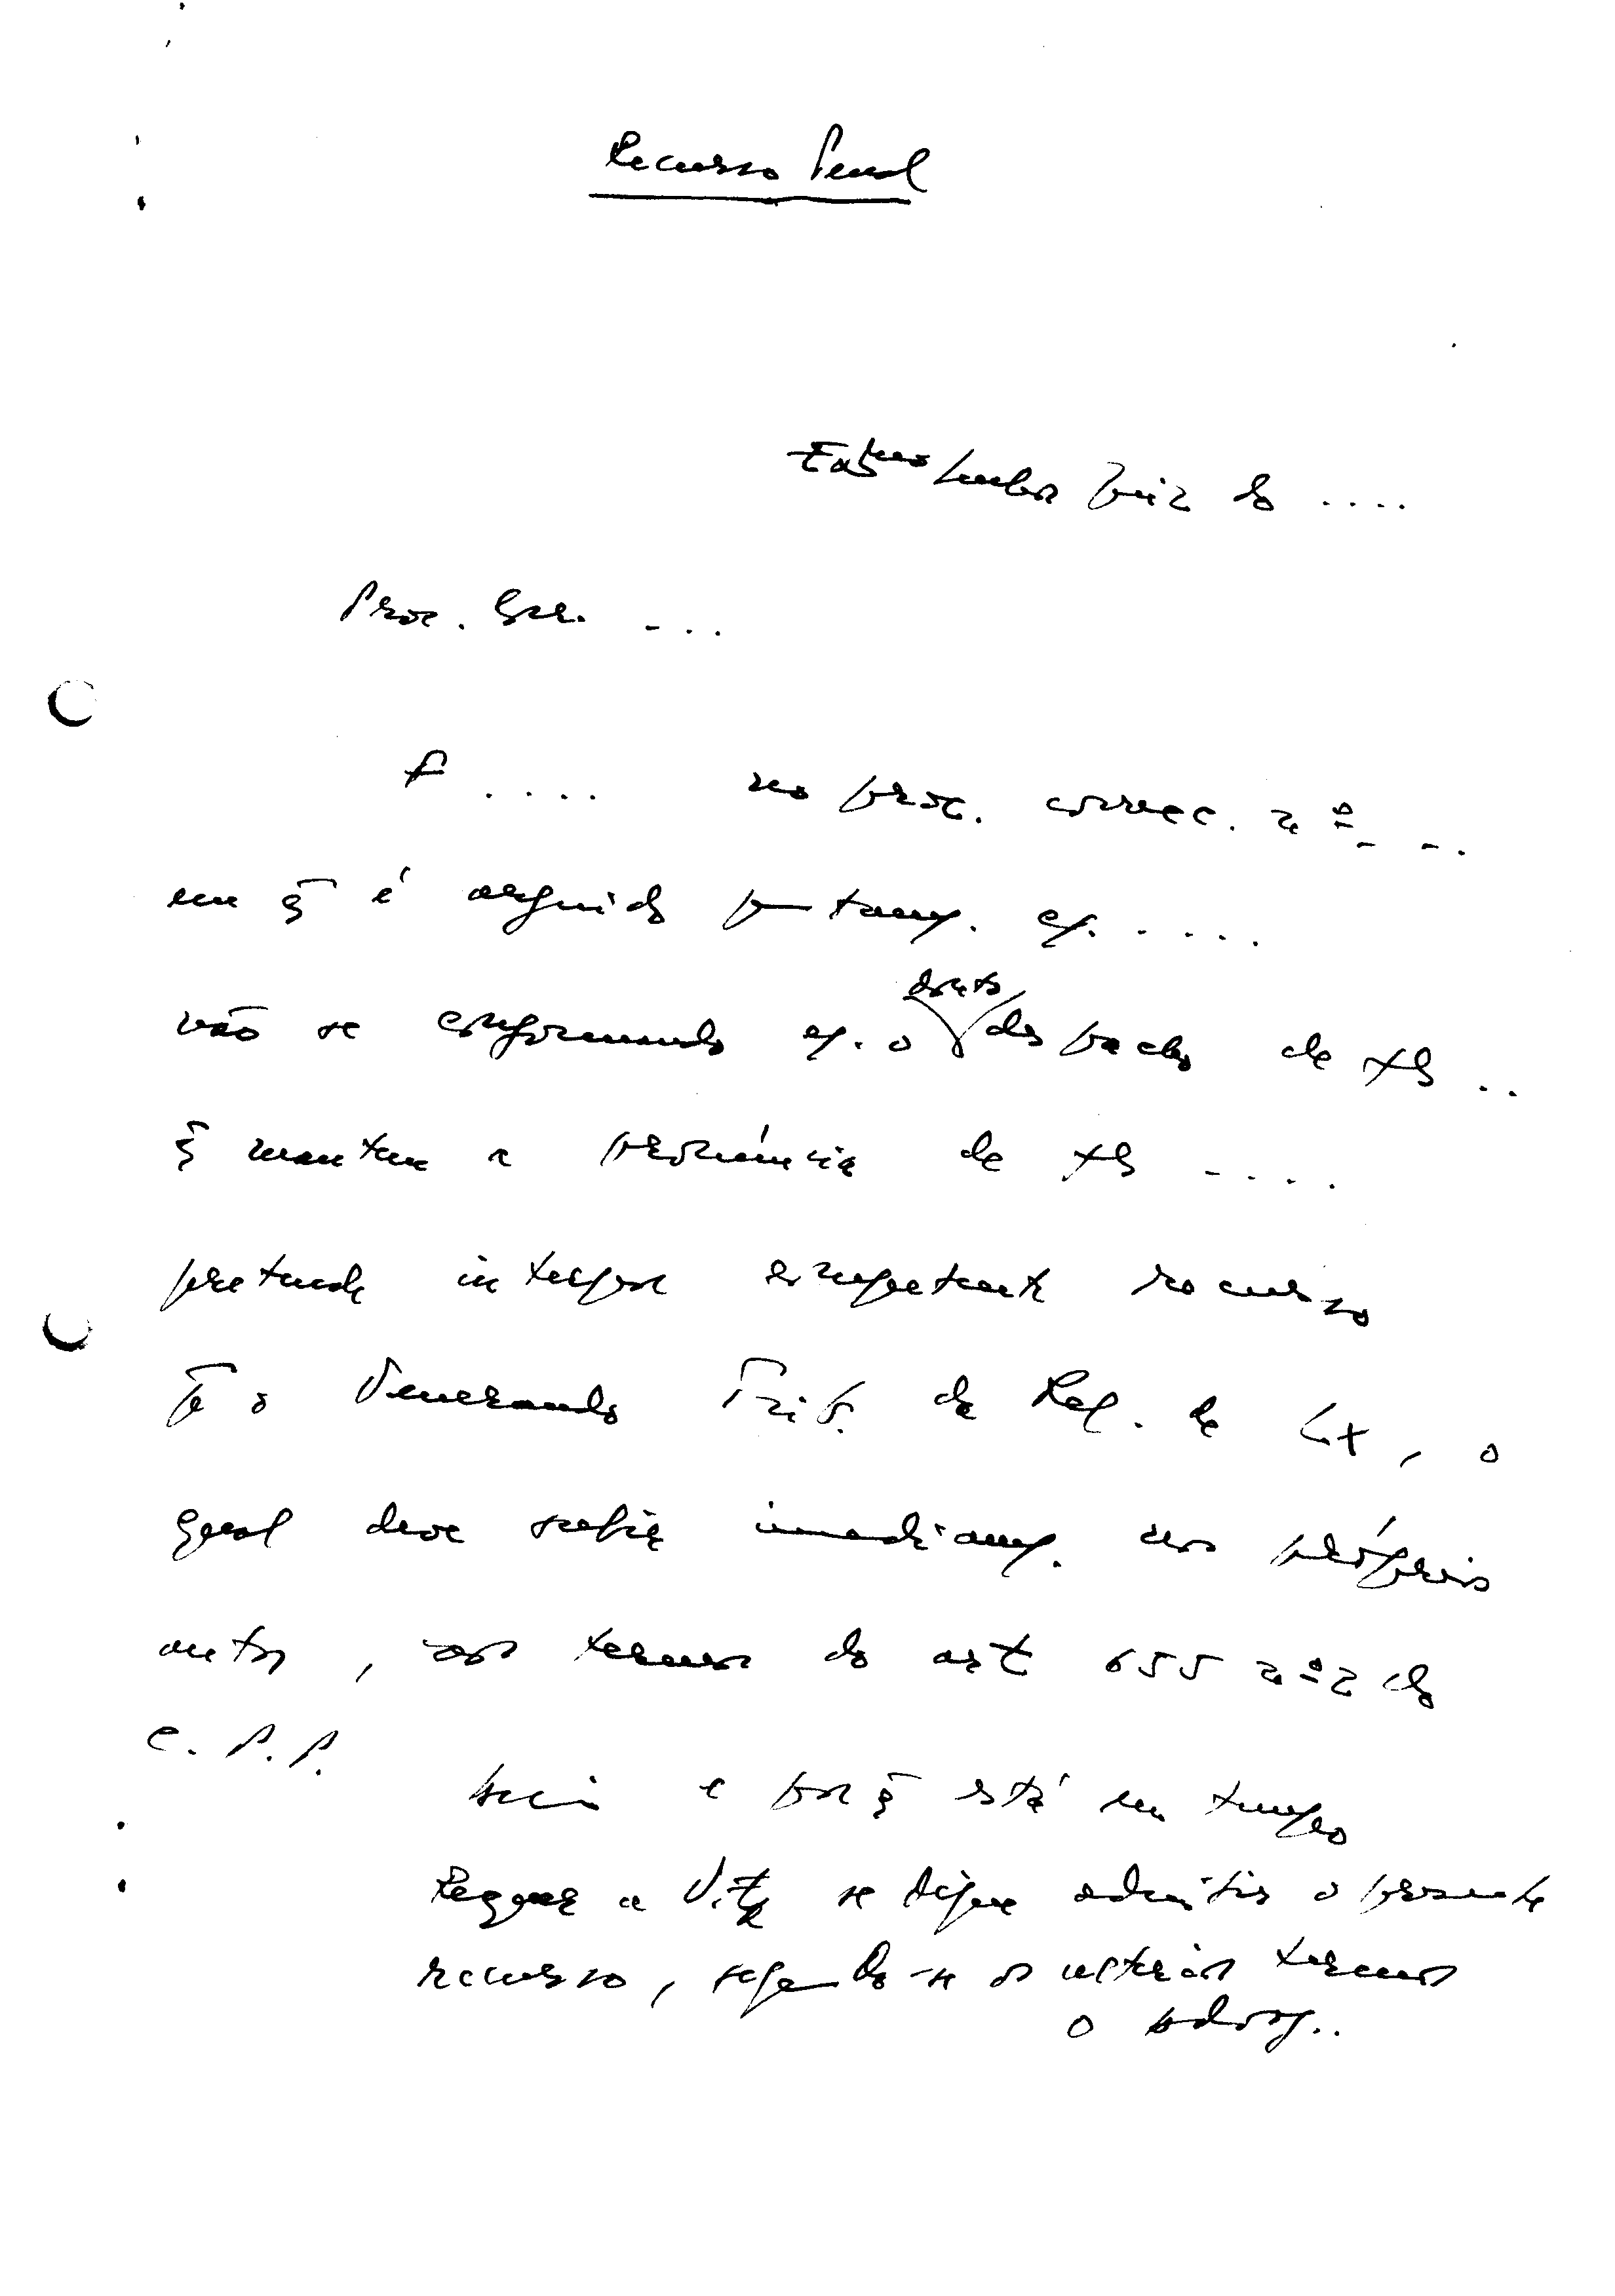 Recurso Penal
Exmo Senhor Juiz do ....
Proc. ...
F .... no proc. correc. nº ...
em q̄ é arguido ....
não se conformando c/. o douto despacho de fls ..
q̄ mantem a pronúncia de fls ....
pretende interpor competente recurso
p̄ o Venerando Trib. da Rel. de Lx, o
qual deve subir imediam/. nos próprios
autos, nos termos do art 655 nº 2 do
C.P.P.
Assim e porq̄ está em tempo
Requer a V. Exa se digne admitir o presente
recurso, seguindo-se os ulteriores termos
o advog..